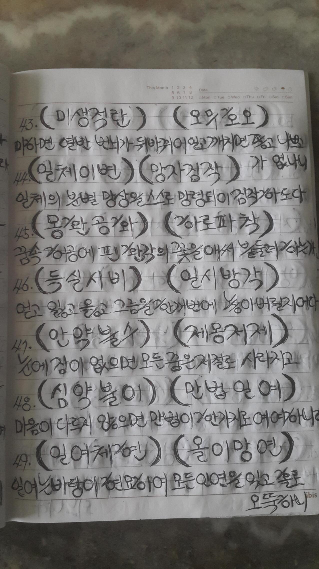 43. (미생적란) (오무호오)
미하면 적란 번뇌가 뒤따라 어업고 깨치면 좋고 나쁘
44. (일체이변) (망자짐작) 가 없나니
일체의 분별 망상 스스로 망령되이 짐작하도다
45. (몽환공화) (하로파착)
꿈속 허공에 핀 환화의 꽃을 애써 붙들려 하는가
46. (득실시비) (일시방각)
얻고 잃고 옳고 그름을 한꺼번에 놓아버릴지어다
47. (안약불수) (제몽자제)
눈에 잠이 없으면 모든 꿈은 저절로 사라지고
48. (심약불이) (만법일여)
마음이 다르지 않으면 만법이 한가지로 여여하니라
49. (일여체현) (올이망연)
일여는 바탕이 현묘하여 모든 인연을 잊고 홀로
오뚝하니